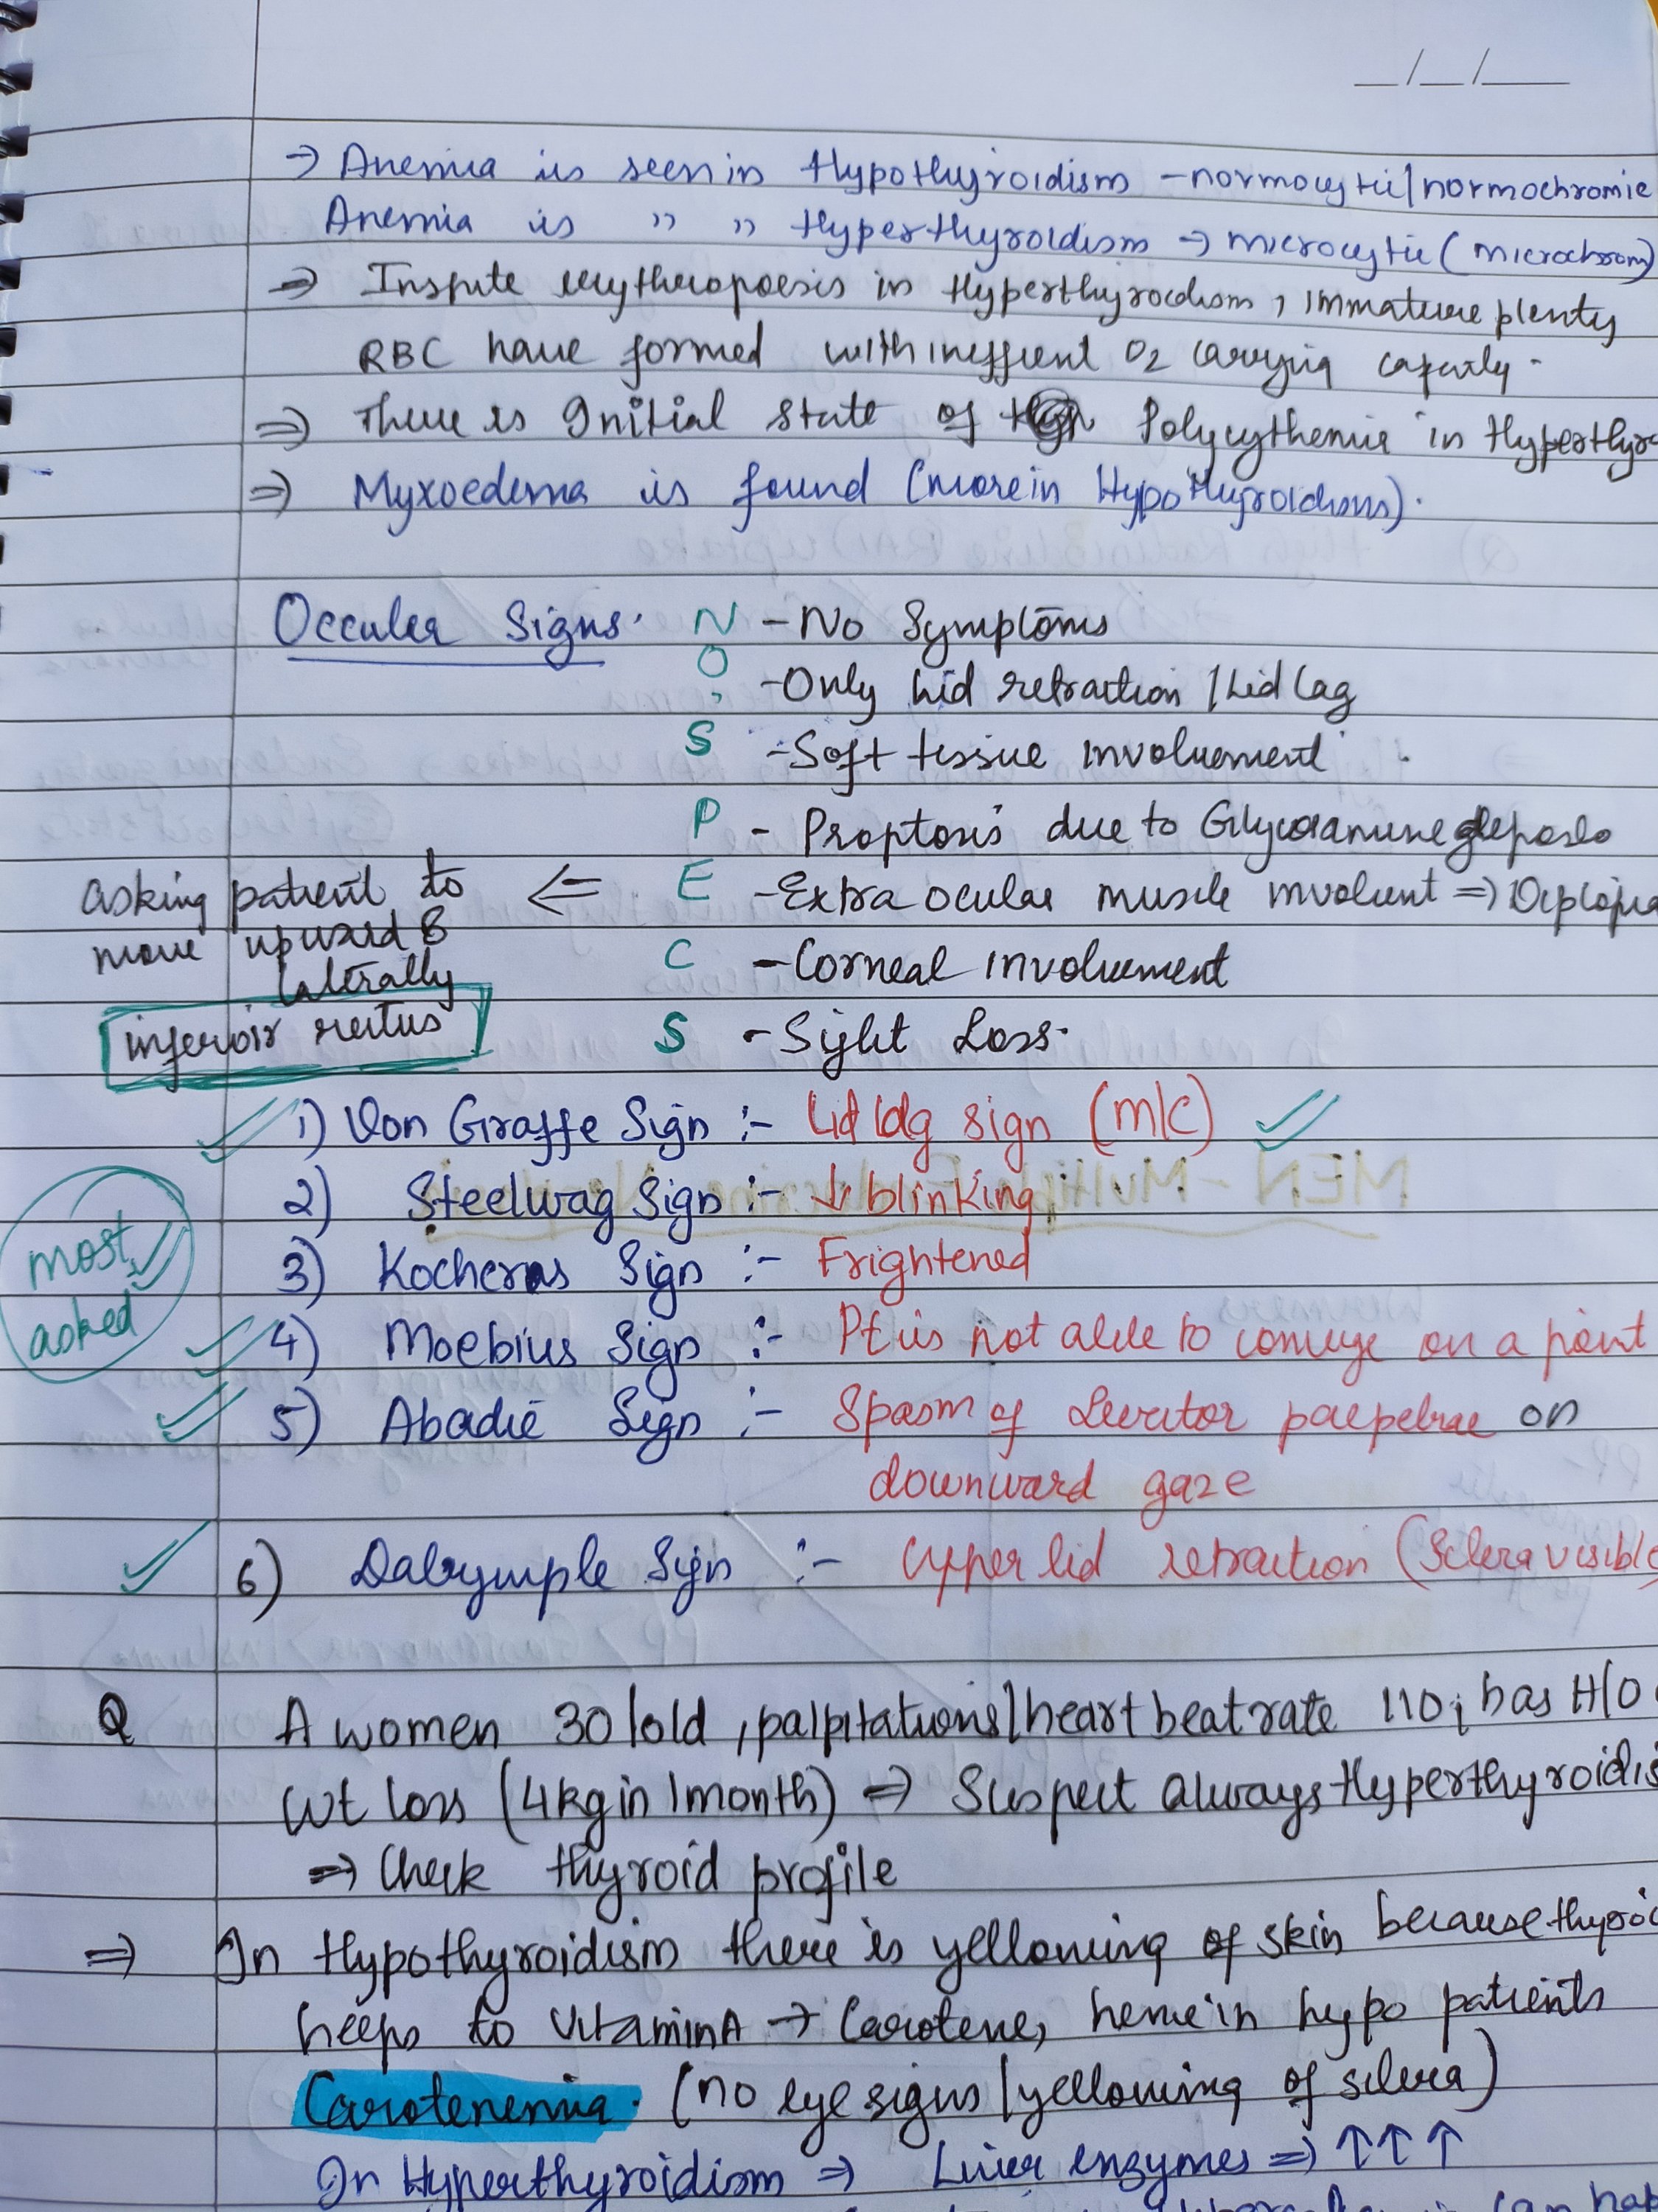 __/__/____
→ Anemia is seen in Hypothyroidism - normocytic/normochromic
Anemia is " " Hyperthyroidism → microcytic (microchrom)
⇒ Inspite erythropoesis in Hyperthyroidism, immature plenty
RBC have formed with inefficient O2 carrying capacity.
⇒ There is Initial State of Polycythemia in Hyperthyro
⇒ Myxoedema is found (more in Hypothyroidism).
Occular Signs. N - No Symptoms
O, - Only lid retraction / Lid lag
S - Soft tissue involvement
P - Proptosis due to
E - Extra ocular muscle involvent ⇒ Diplopia
⇐ asking patient to
move upward &
laterally
inferoir rectus
C - Corneal involvement
S - Sight Loss.
1) Von Graffe Sign :- Lid lag sign (m/c)
2) Steelwag Sign :- ↓ blinking
3) Kochers Sign :- Frightened
most asked
4) Moebius Sign :- Pt is not able to converge on a point
5) Abadie Sign :- Spasm of Levator palpebrae on
downward gaze
6) Dalrymple Sign :- Upper lid retraction (Sclera visible)
Q A women 30/old, palpitations/heart beat rate 110; has H/O
wt loss (4kg in 1month) ⇒ Suspect always Hyperthyroidis
⇒ Check thyroid profile
⇒ In Hypothyroidism there is yellowing of skin because thyroi
heeps to vitamin A → Carotene, hence in hypo patients
Carotenemia. (no eye signs/yellowing of sclera)
In Hyperthyroidism ⇒ Liver enzymes ⇒ ↑↑↑